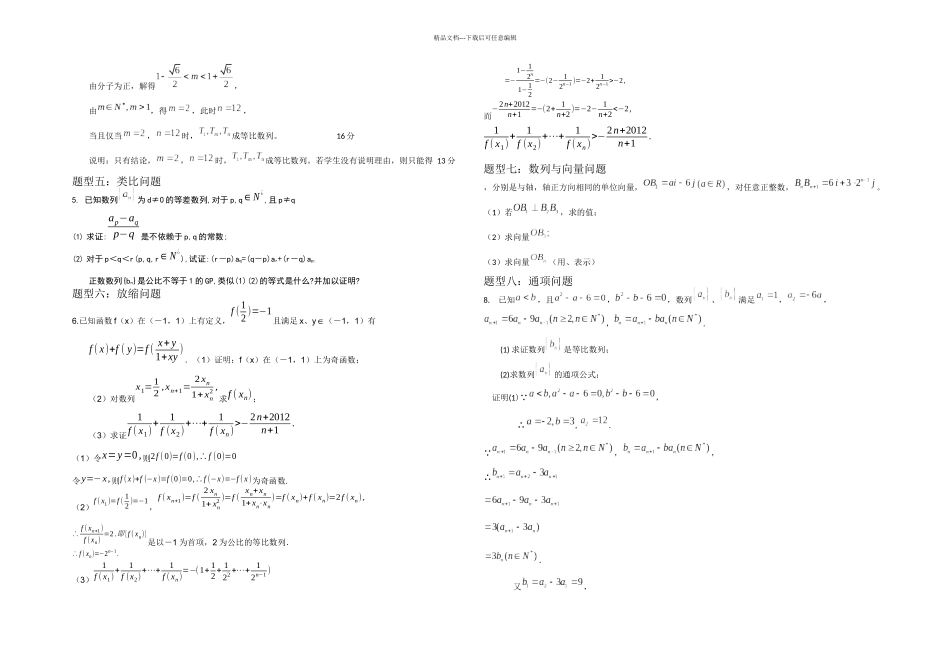 精品文档---下载后可任意编辑
由分子为正，解得1-√6/2<m<1+√6/2，
由m∈N*,m>1，得m=2，此时n=12，
当且仅当m=2，n=12时，T₁,Tₘ,Tₙ成等比数列。 16分
说明：只有结论，m=2，n=12时，T₁,Tₘ,Tₙ成等比数列。若学生没有说明理由，则只能得 13分
题型五：类比问题
5. 已知数列{aₙ}为d≠0的等差数列,对于p,q∈N*,且p≠q
⑴ 求证：(aₚ-a_q)/(p-q) 是不依赖于p,q的常数;
⑵ 对于p＜q＜r(p,q,r∈N*),试证：(r－p)a_q=(q－p)aᵣ+(r－q)aₚ.
正数数列{bₙ}是公比不等于1的GP,类似(1)(2)的等式是什么?并加以证明?
题型六：放缩问题
6.已知函数f（x）在（－1，1）上有定义，f(1/2)=-1且满足x、y∈（－1，1）有
f(x)+f(y)=f((x+y)/(1+xy)). （1）证明：f（x）在（－1，1）上为奇函数；
（2）对数列x₁=1/2,xₙ₊₁=2xₙ/(1+xₙ²),求f(xₙ);
（3）求证1/f(x₁)+1/f(x₂)+⋯+1/f(xₙ)>-(2n+2012)/(n+1).
（1）令x=y=0,则2f(0)=f(0),∴f(0)=0
令y=-x,则f(x)+f(-x)=f(0)=0,∴f(-x)=-f(x)为奇函数.
（2）f(x₁)=f(1/2)=-1，f(xₙ₊₁)=f(2xₙ/(1+xₙ²))=f((xₙ+xₙ)/(1+xₙ·xₙ))=f(xₙ)+f(xₙ)=2f(xₙ),
∴f(xₙ₊₁)/f(xₙ)=2,即{f(xₙ)}是以－1为首项，2为公比的等比数列.
∴f(xₙ)=-2ⁿ⁻¹.
（3）1/f(x₁)+1/f(x₂)+⋯+1/f(xₙ)=-(1+1/2+1/2²+⋯+1/2ⁿ⁻¹)
=-(1-1/2ⁿ)/(1-1/2)=-(2-1/2ⁿ⁻¹)=-2+1/2ⁿ⁻¹>-2,
而-(2n+2012)/(n+1)=-(2+1/(n+2))=-2-1/(n+2)<-2,
1/f(x₁)+1/f(x₂)+⋯+1/f(xₙ)>-(2n+2012)/(n+1).
题型七：数列与向量问题
，分别是与轴，轴正方向相同的单位向量，OB₁=ai-6j(a∈R)，对任意正整数，BₙBₙ₊₁=6i+3·2ⁿ⁻¹j。
（1）若OB₁⊥B₂B₃，求的值;
（2）求向量OBₙ;
（3）求向量OBₙ（用、表示）
题型八：通项问题
8. 已知a<b，且a²-a-6=0，b²-b-6=0，数列{aₙ}、{bₙ}满足a₁=1，a₂=6a，
aₙ₊₁=6aₙ-9aₙ₋₁(n≥2,n∈N*)，bₙ=aₙ₊₁-baₙ(n∈N*).
(1)求证数列{bₙ}是等比数列;
(2)求数列{aₙ}的通项公式;
证明(1)∵a<b,a²-a-6=0,b²-b-6=0,
∴a=-2,b=3，a₂=-12.
∵aₙ₊₁=6aₙ-9aₙ₋₁(n≥2,n∈N*)，bₙ=aₙ₊₁-baₙ(n∈N*)，
∴bₙ₊₁=aₙ₊₂-3aₙ₊₁
=6aₙ₊₁-9aₙ-3aₙ₊₁
=3(aₙ₊₁-3aₙ)
=3bₙ(n∈N*).
又b₁=a₂-3a₁=9，